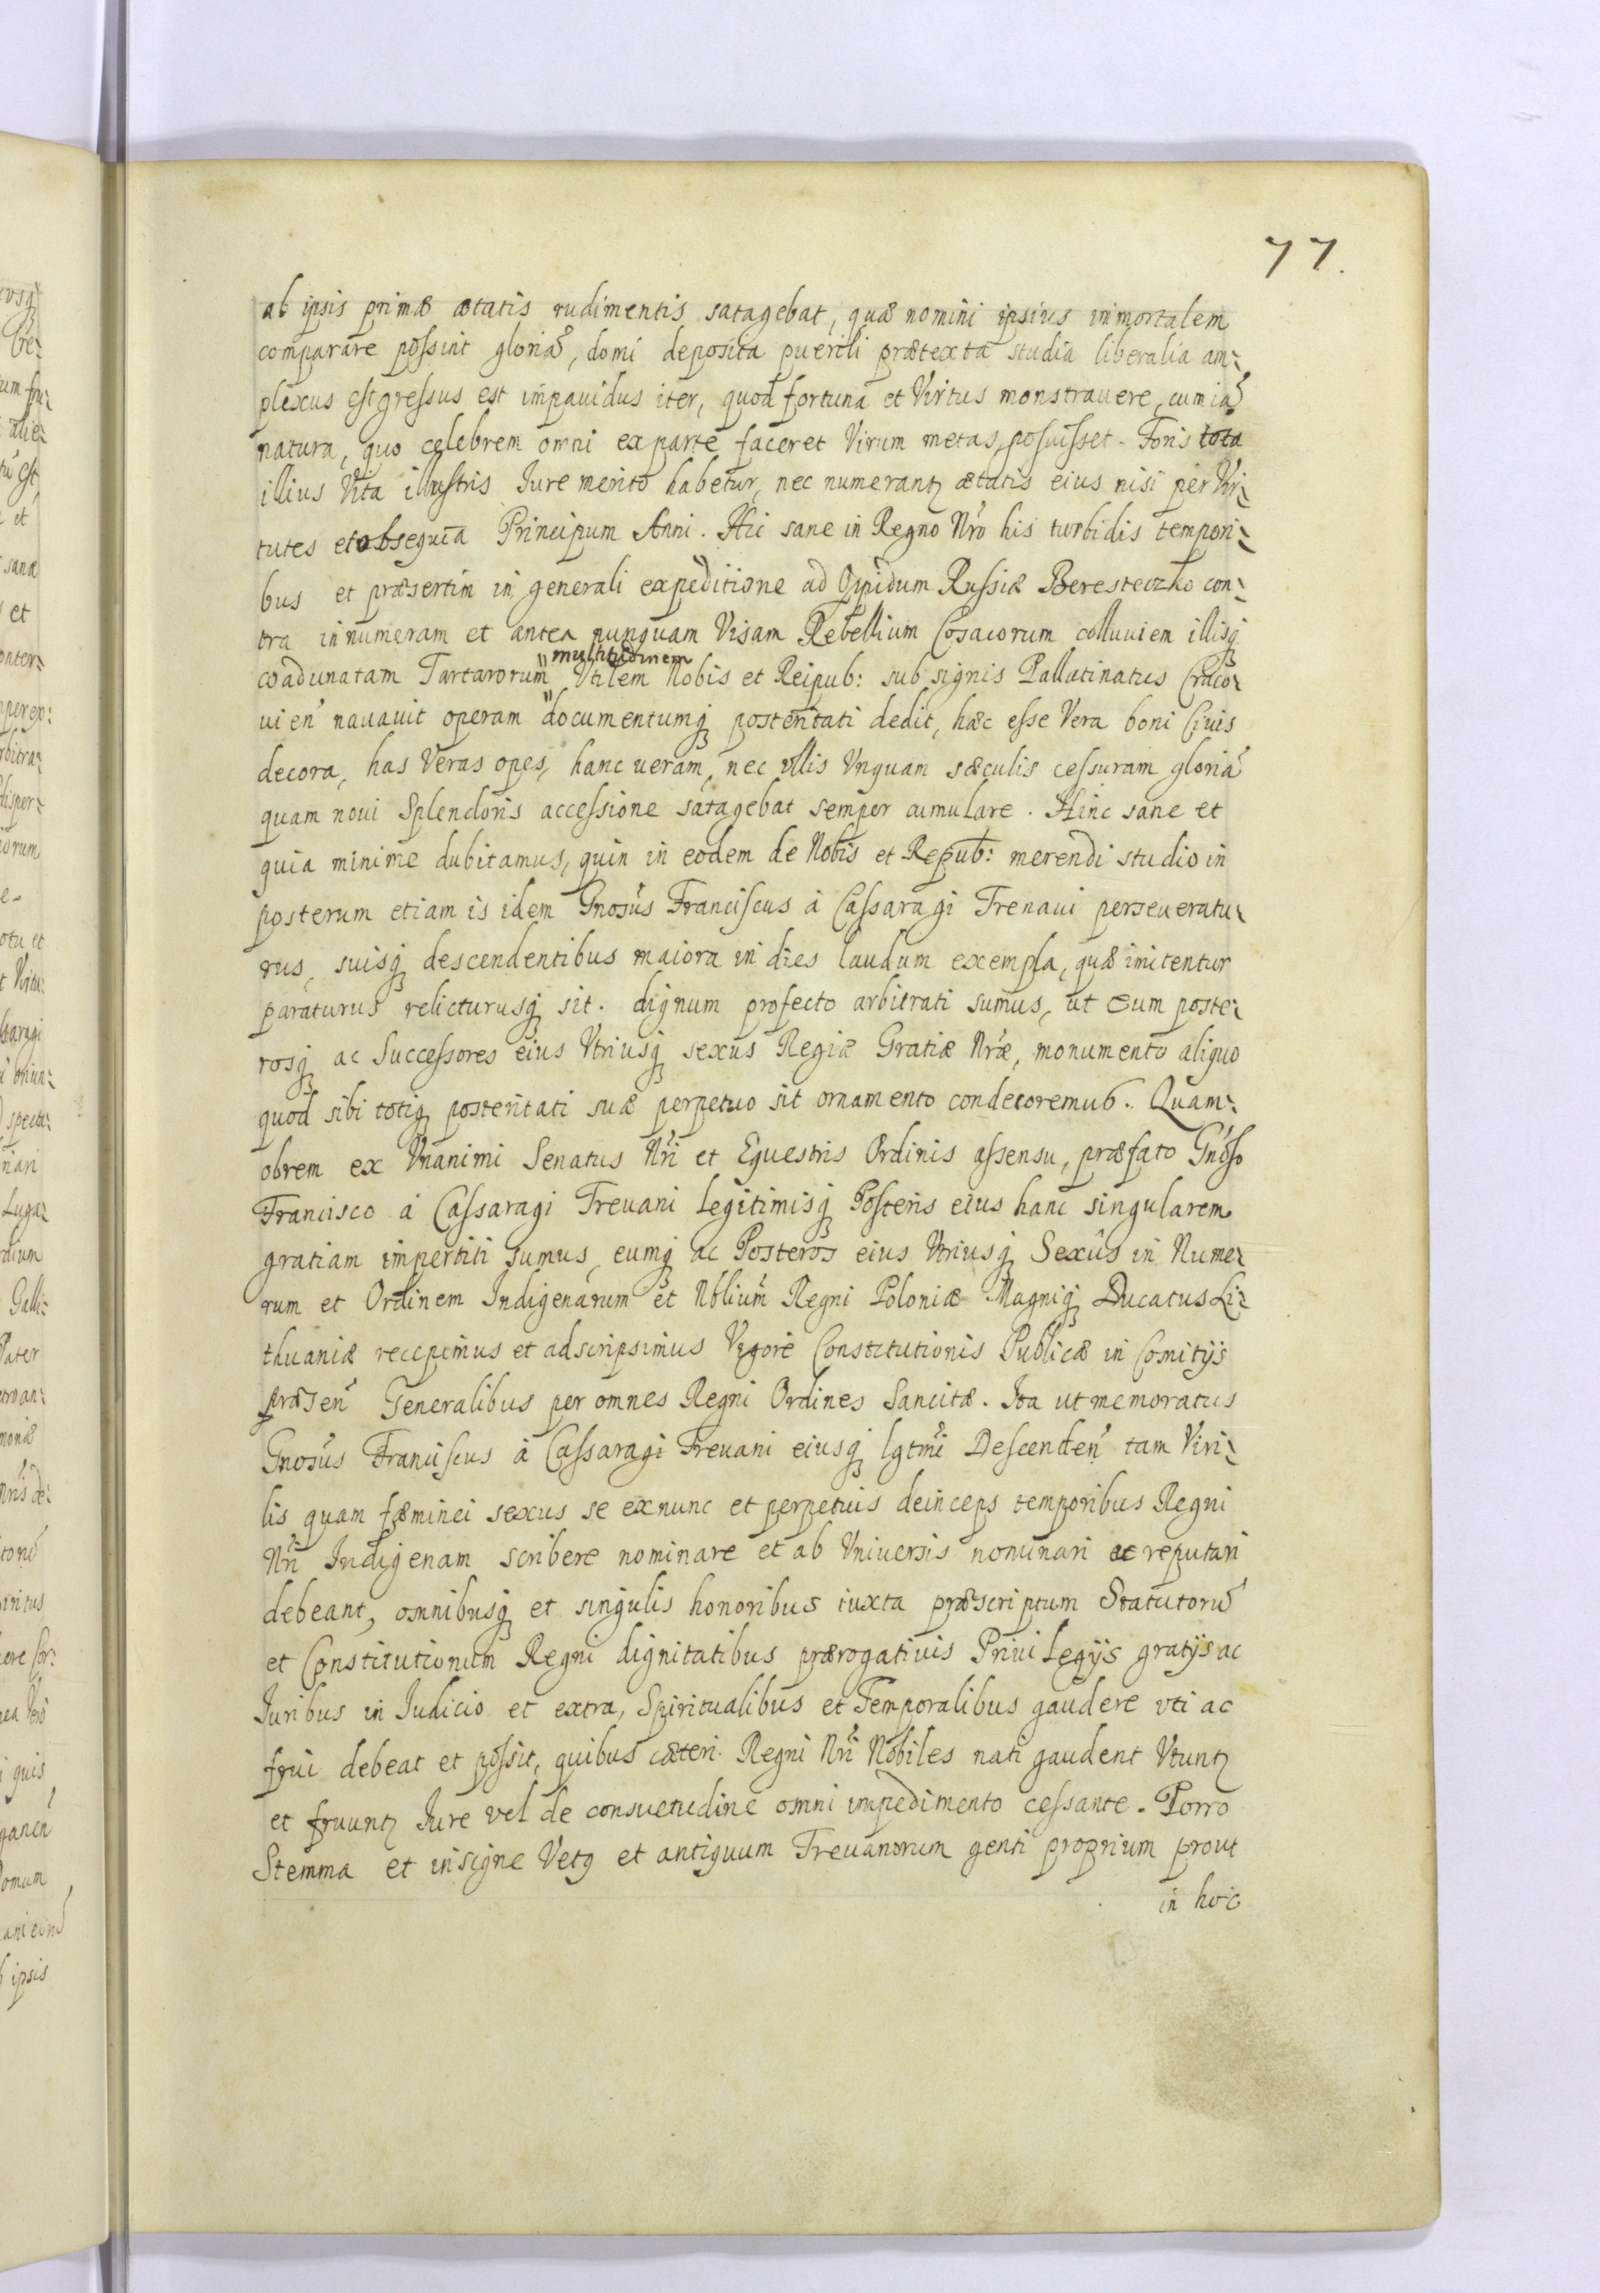 77.
ab ipsis primæ ætatis rudimentis satagebat, quæ nomini ipsius immortalem
comparare possint gloriã, domi deposita puerili prætexta studia liberalia am-
plexus est gressus est impauidus iter, quod fortuna et Virtus monstrauere, cum iã
natura, quo celebrem omni ex parte faceret Virum metas posuisset. Foris tota
illius Vita illustris Iure merito habetur, nec numerantʒ ætatis eius nisi per Vir-
tutes et obsequia Principum Anni. Hic sane in Regno Nro his turbidis tempori-
bus et præsertim in generali expeditione ad Oppidum Russiæ Beresteczko con-
tra innumeram et antea nunquam Visam Rebellium Cosacorum colluuiem illisqʒ
multitudinem
coadunatam Tartarorum" Vtilem Nobis et Reipub: sub signis Pallatinatus Craco-
uien̄ nauauit operam documentumqʒ posteritati dedit, hæc esse Vera boni Ciuis
decora, has Veras opes, hanc ueram, nec ullis Vnquam sæculis cessuram gloriã
quam noui Splendoris accessione satagebat semper cumulare. Hinc sane et
quia minime dubitamus, quin in eodem de Nobis et Repub: merendi studio in
posterum etiam is idem Gnosus Franciscus à Cassaragi Treuani perseueratu-
rus, suisqʒ descendentibus maiora in dies laudum exempla, quæ imitentur
paraturus relicturusqʒ sit. dignum profecto arbitrati sumus, ut eum poste-
rosqʒ ac Successores eius Vtriusqʒ sexus Regiæ Gratiæ Nræ, monumento aliquo
quod sibi totiqʒ posteritati suæ perpetuo sit ornamento condecoremus. Quam-
obrem ex Vnanimi Senatus Nri et Equestris Ordinis assensu, præfato Gnoso
Francisco à Cassaragi Treuani legitimisqʒ Posteris eius hanc singularem
gratiam impertiti sumus, eumqʒ ac Posteros eius Vtriusqʒ Sexus in Nume-
rum et Ordinem Indigenarum et Nblium Regni Poloniæ Magniqʒ Ducatus Li-
thuaniæ recepimus et adscripsimus Vigore Constitutionis Publicæ in Comitijs
præsen̄ Generalibus per omnes Regni Ordines Sancitæ. Ita ut memoratus
Gnosus Franciscus à Cassaragi Treuani eiusqʒ lgtmi Descenden̄ tam Viri-
lis quam fæminei sexus se ex nunc et perpetuis deinceps temporibus Regni
Nri Indigenam scribere nominare et ab Vniuersis nominari ac reputari
debeant, omnibusqʒ et singulis honoribus iuxta præscriptum Statutorũ
et Constitutionum Regni dignitatibus prærogatiuis Priuilegijs gratijs ac
Iuribus in Iudicio et extra, Spiritualibus et Temporalibus gaudere vti ac
frui debeat et possit, quibus cæteri Regni Nri Nobiles nati gaudent Vtuntʒ
et fruuntʒ Iure vel de consuetudine omni impedimento cessante. Porro
Stemma et insigne Vetq et antiquum Treuanorum genti proprium prout
in hoc